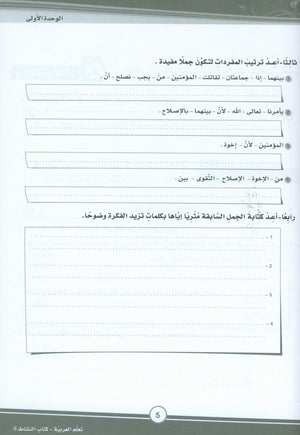 الوحدة الأولى
ثالثًا- أعدْ ترتيبَ المفرداتِ لتكوّنَ جملًا مفيدة .
بينهما - إذا - جماعتان - تقاتلت - المؤمنين - من - يجب - نصلح - أنْ .
يأمرنا - تعالى - الله - لأنْ - بينهما - بالإصلاح .
المؤمنين - لأنّ - إخوة .
من - الإخوة - الإصلاح - التّقوى - بين .
رابعًا- أعدْ كتابةَ الجملِ السّابقة مُثْريًا إيّاها بكلماتٍ تزيد الفكرة وضوحًا.
1 -
2 -
3 -
4 -
5
تعلّم العربيّة - كتاب النشاط 6